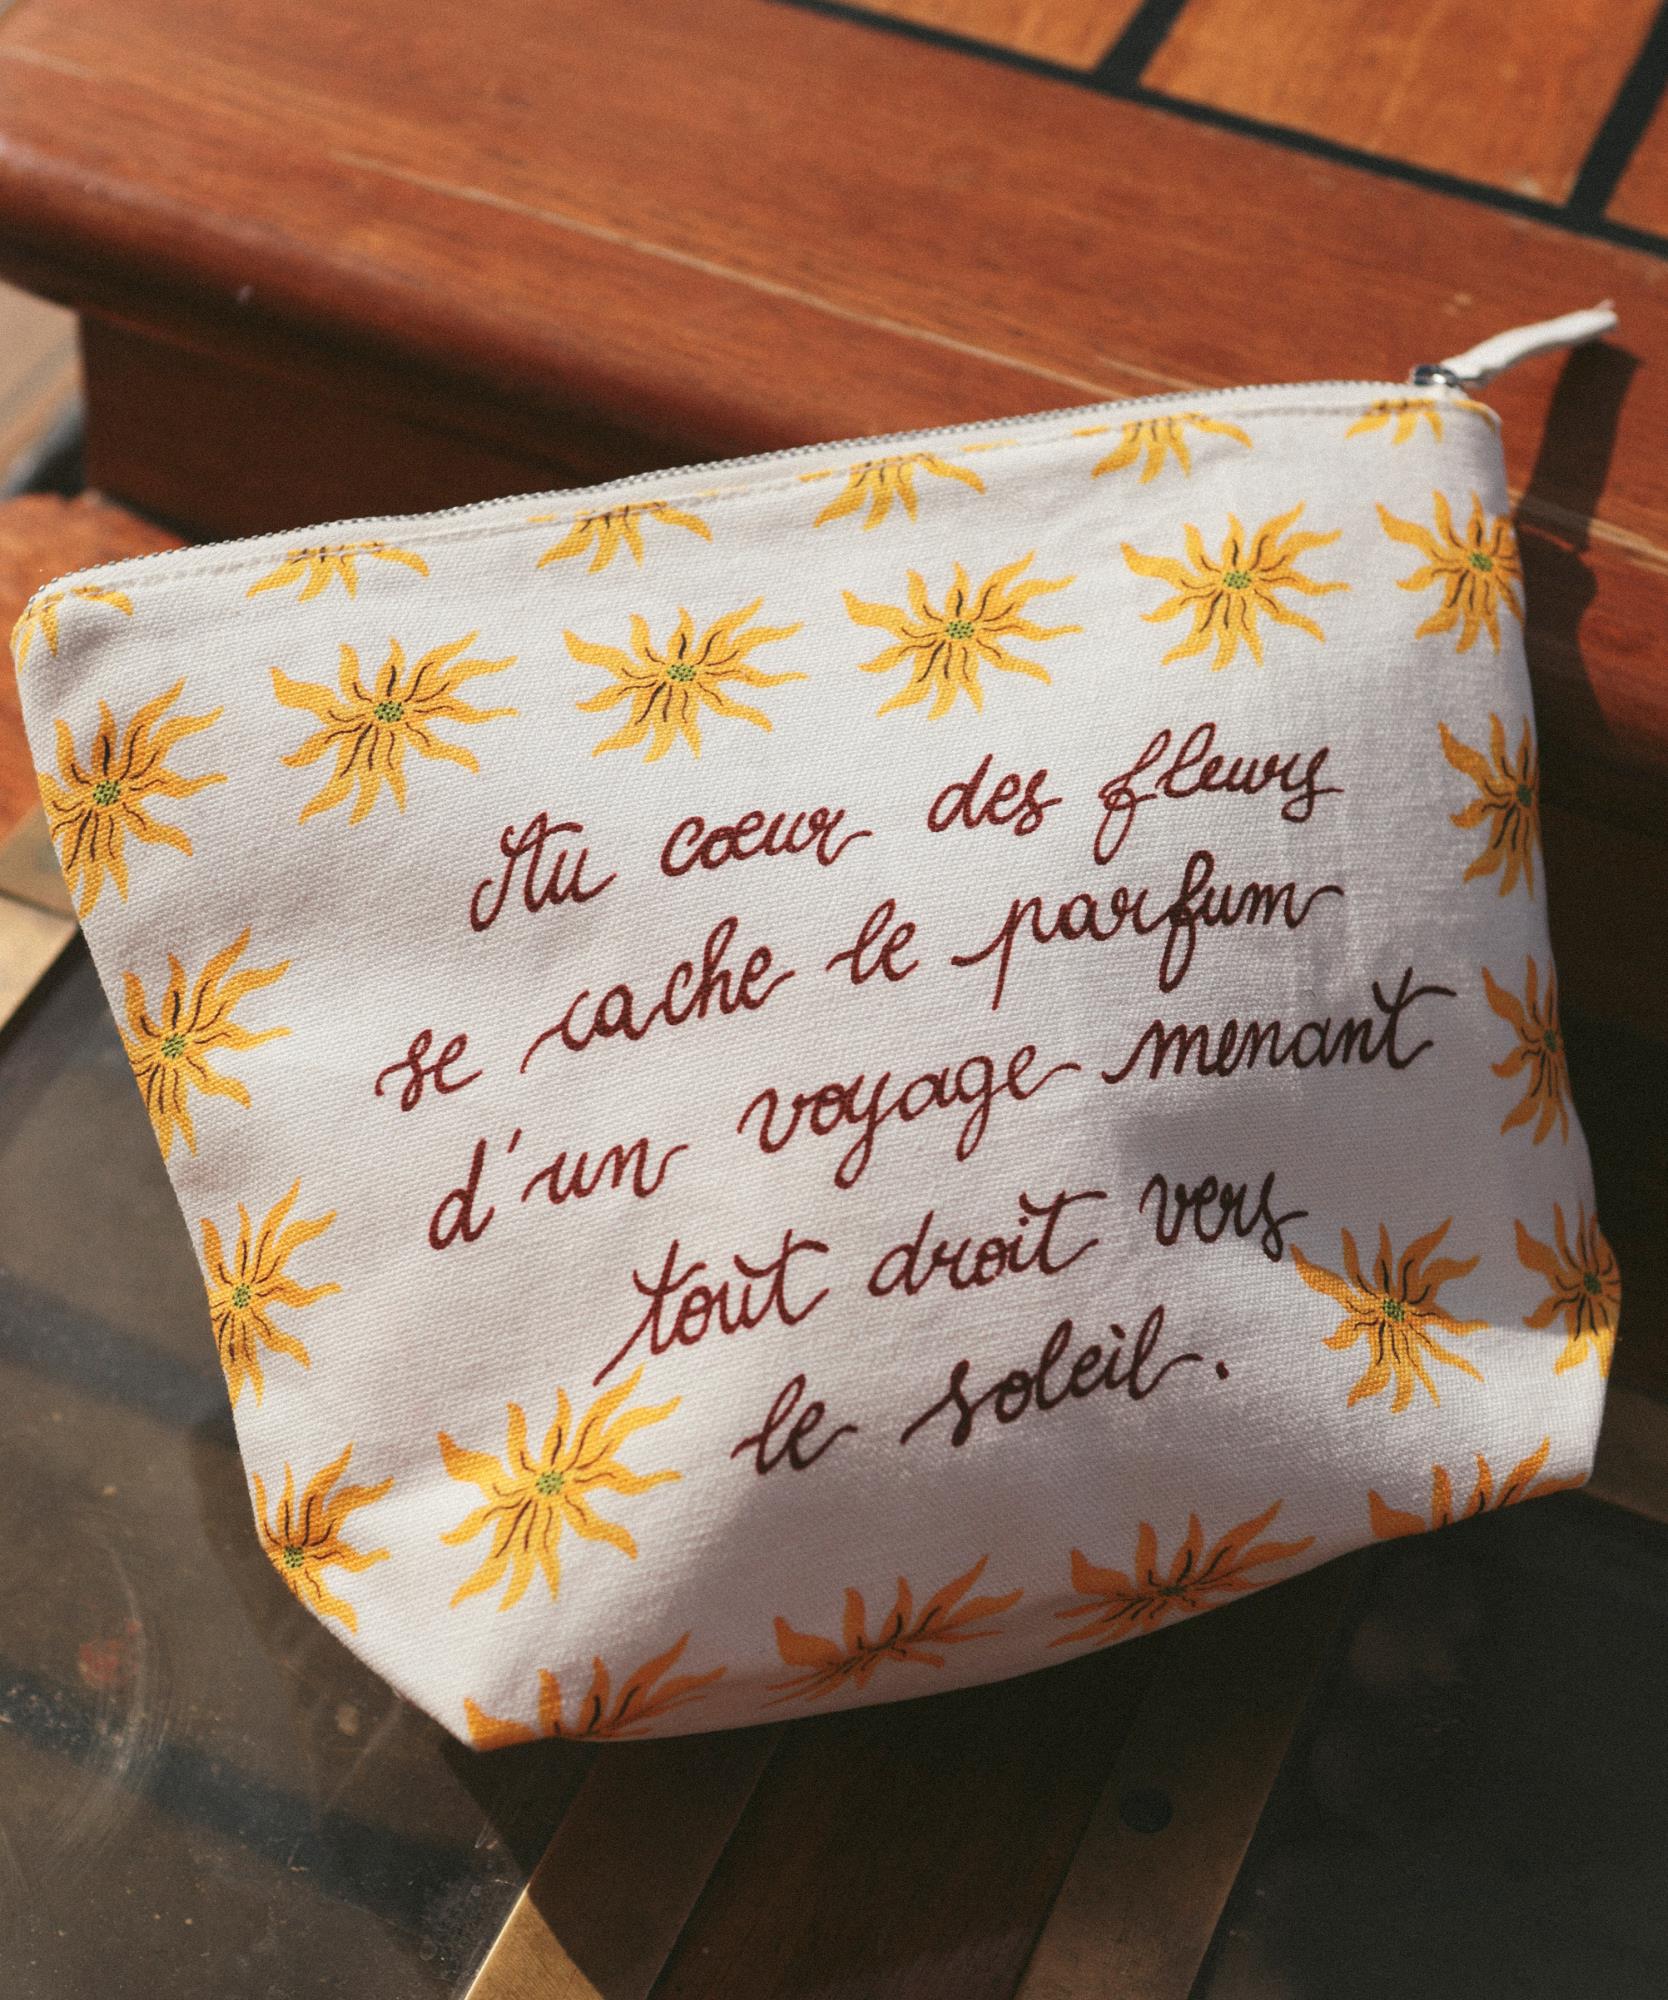 Au cœur des fleurs
se cache le parfum
d'un voyage menant
tout droit vers
le soleil.